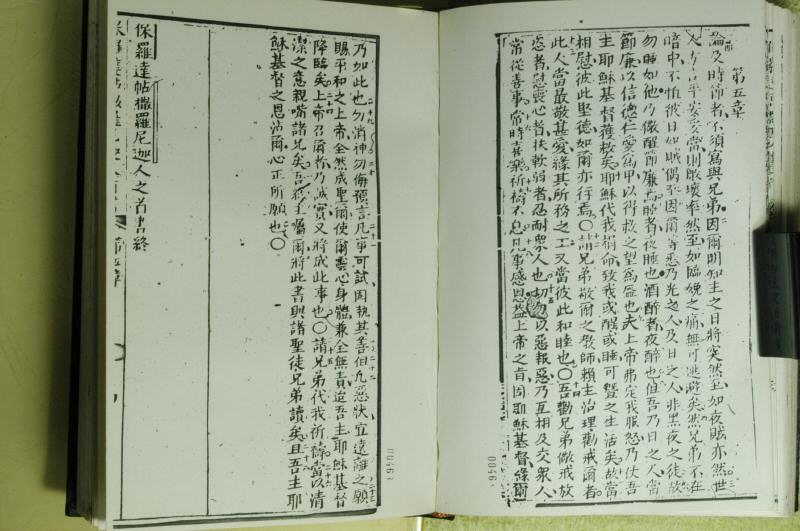 第五章
論及時節者不須寫與兄弟因爾明知主之日將突然至如夜賊亦然世
人言平安妥當則敗壞率然至如臨娩之痛無可逃避矣然兄弟不在
暗中不怕彼日如賊偶至因爾等悉乃光之人及日之人非黑夜之徒故
勿睡如他乃儆醒節廉而睡者夜睡也酒醉者夜醉也但吾乃日之人當
節廉以信德仁愛為甲以得救之望為盔也夫上帝弗定我服怒乃仗吾
主耶穌基督獲救矣耶穌代我捐命致我或醒或睡可曁之生活矣故當
相慰彼此堅德如爾亦行焉〇請兄弟敬爾之教師賴主治理勸戒爾者
此人當最敬甚愛緣其所務之工又當彼此和睦也〇吾勸兄弟儆戒放
恣者慰喪心者扶軟弱者忍耐衆人也切勿以惡報惡乃互相及交衆人
常從善事常時喜樂祈禱不息凡事感恩蓋上帝之旨因耶穌基督緣爾
乃如此也勿消神勿侮預言凡事可試固執其善但凡惡狀宜遠離之願
賜平和之上帝全然成聖爾使爾靈心身體兼全無責迨吾主耶穌基督
降臨矣上帝召爾者乃誠實又將成此事也〇請兄弟代我祈禱當以清
潔之意親嘴諸兄矣吾於主囑爾將此書與諸聖徒兄弟讀矣且吾主耶
穌基督之恩沾爾心正所願也〇
保羅達帖撒羅尼迦人之首書終